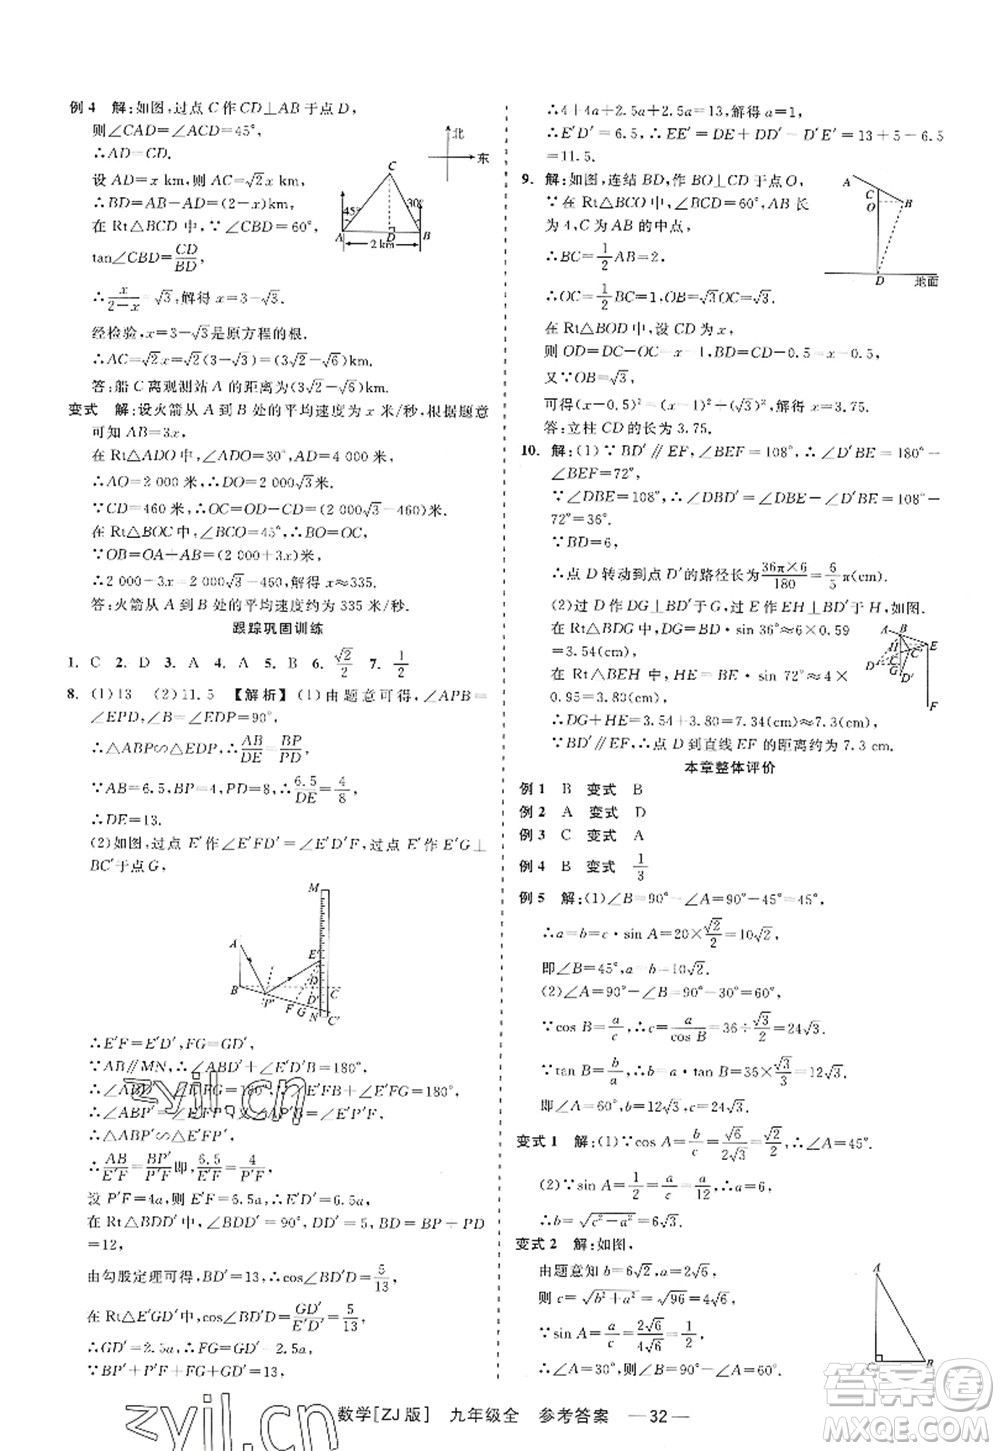 例 4 解:如图,过点 C 作 CD⊥AB 于点 D,
则∠CAD=∠ACD=45°,
∴AD=CD.
设 AD=x km,则 AC=√2x km,
∴BD=AB-AD=(2-x)km.
在 Rt△BCD 中,∵∠CBD=60°,
tan∠CBD=CD/BD,
∴x/(2-x)=√3,解得 x=3-√3.
经检验,x=3-√3是原方程的根.
∴AC=√2x=√2(3-√3)=(3√2-√6)km.
答:船 C 离观测站 A 的距离为(3√2-√6)km.
北
东
C
45°
30°
A D B
2 km
变式 解:设火箭从 A 到 B 处的平均速度为 x 米/秒,根据题意
可知 AB=3x,
在 Rt△ADO 中,∠ADO=30°,AD=4 000,
∴AO=2 000 米,∴DO=2 000√3米.
∵CD=460 米,∴OC=OD-CD=(2 000√3-460)米.
在 Rt△BOC 中,∠BCO=45°,∴BO=OC,
∵OB=OA+AB=(2 000+3x)米,
∴2 000+3x=2 000√3-460,解得 x≈335.
答:火箭从 A 到 B 处的平均速度约为 335 米/秒.
跟踪巩固训练
1. C 2. D 3. A 4. A 5. B 6. √2/2 7. 1/2
8. (1)13 (2)11.5 【解析】(1)由题意可得,∠APB=
∠EPD,∠B=∠EDP=90°,
∴△ABP∽△EDP,∴AB/DE=BP/PD,
∵AB=6.5,BP=4,PD=8,∴6.5/DE=4/8,
∴DE=13.
(2)如图,过点 E′作∠E′FD′=∠E′D′F,过点 E′作 E′G⊥
BC′于点 G,
M
A
E′
D
B
P′ F G N C′
D′
C
∴E′F=E′D′,FG=GD′,
∵AB∥MN,∴∠ABP′+∠E′D′B=180°,
∴∠ABP′+∠E′FG=180°,∵∠E′FB+∠E′FG=180°,
∴∠ABP′=∠E′FP′,又∵∠AP′B=∠E′P′F,
∴△ABP′∽△E′FP′,
∴AB/E′F=BP′/P′F即,6.5/E′F=4/P′F,
设 P′F=4a,则 E′F=6.5a,∴E′D′=6.5a,
在 Rt△BDD′中,∠BDD′=90°,DD′=5,BD=BP+PD
=12,
由勾股定理可得,BD′=13,∴cos∠BD′D=5/13,
在 Rt△E′GD′中,cos∠BD′D=GD′/E′D′=5/13,
∴GD′=2.5a,∴FG=GD′=2.5a,
∵BP′+P′F+FG+GD′=13,
∴4+4a+2.5a+2.5a=13,解得 a=1,
∴E′D′=6.5,∴EE′=DE+DD′-D′E′=13+5-6.5
=11.5.
9. 解:如图,连结 BD,作 BO⊥CD 于点 O,
在 Rt△BCO 中,∵∠BCD=60°,AB 长
为 4,C 为 AB 的中点,
∴BC=1/2AB=2,
∴OC=1/2BC=1,BO=√3OC=√3.
在 Rt△BOD 中,设 CD 为 x,
则 OD=DC-OC=x-1,BD=CD-0.5=x-0.5,
又∵BO=√3,
可得(x-0.5)²=(x-1)²+(√3)²,解得 x=3.75.
答:立柱 CD 的长为 3.75.
A
C
O
B
D 地面
10. 解:(1)∵BD′∥EF,∠BEF=108°,∴∠D′BE=180°
-∠BEF=72°,
∵∠DBE=108°,∴∠DBD′=∠DBE-∠D′BE=108°-
72°=36°.
∵BD=6,
∴点 D 转动到点 D′的路径长为36π×6/180=6/5π(米).
(2)过 D 作 DG⊥BD′于 G,过 E 作 EH⊥BD′于 H,如图.
在 Rt△BDG 中,DG=BD·sin 36°≈6×0.59
=3.54(米),
在 Rt△BEH 中,HE=BE·sin 72°≈4×
0.95=3.80(米),
∴DG+HE=3.54+3.80=7.34≈7.3(米),
∵BD′∥EF,∴点 D 到直线 EF 的距离约为 7.3 米.
A B
E
H
C
D
G
C′
D′
F
本章整体评价
例 1 B 变式 B
例 2 A 变式 D
例 3 C 变式 A
例 4 B 变式 1/3
例 5 解:(1)∠B=90°-∠A=90°-45°=45°,
∴a=b=c·sin A=20×√2/2=10√2,
即∠B=45°,a=b=10√2.
(2)∠A=90°-∠B=90°-60°=30°,
∵cos B=a/c,∴c=a/cos B=36÷√3/2=24√3,
∵tan B=b/a,∴b=a·tan B=36×√3/3=12√3,
即∠B=30°,c=24√3,b=12√3.
变式 1 解:(1)∵cos A=b/c=√6/2√3=√2/2,∴∠A=45°.
(2)∵sin A=1/2=a/c=a/12,∴a=6,
∴b=√(c²-a²)=6√3.
变式 2 解:如图,
由题意知 b=6√2,a=2√6,
则 c=√(b²+a²)=√96=4√6,
∵sin A=a/c=2√6/4√6=1/2,
∴∠A=30°,则∠B=90°-∠A=60°.
A
C
B
zyjl.cn
zyjl.cn
答案圈
MXQE.COM
数学[ZJ版] 九年级全 参考答案 —32—